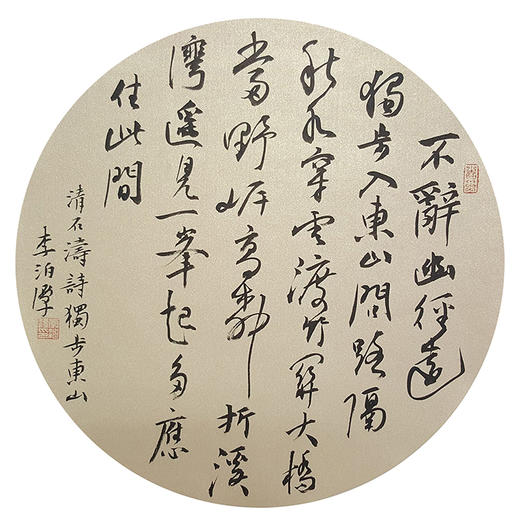 不辭幽徑遠
獨步入東山問路隔
秋水穿雲渡竹關大橋
當野岸高柳折溪
灣遥見一峯起多應
住此間
清石濤詩獨步東山
李泊